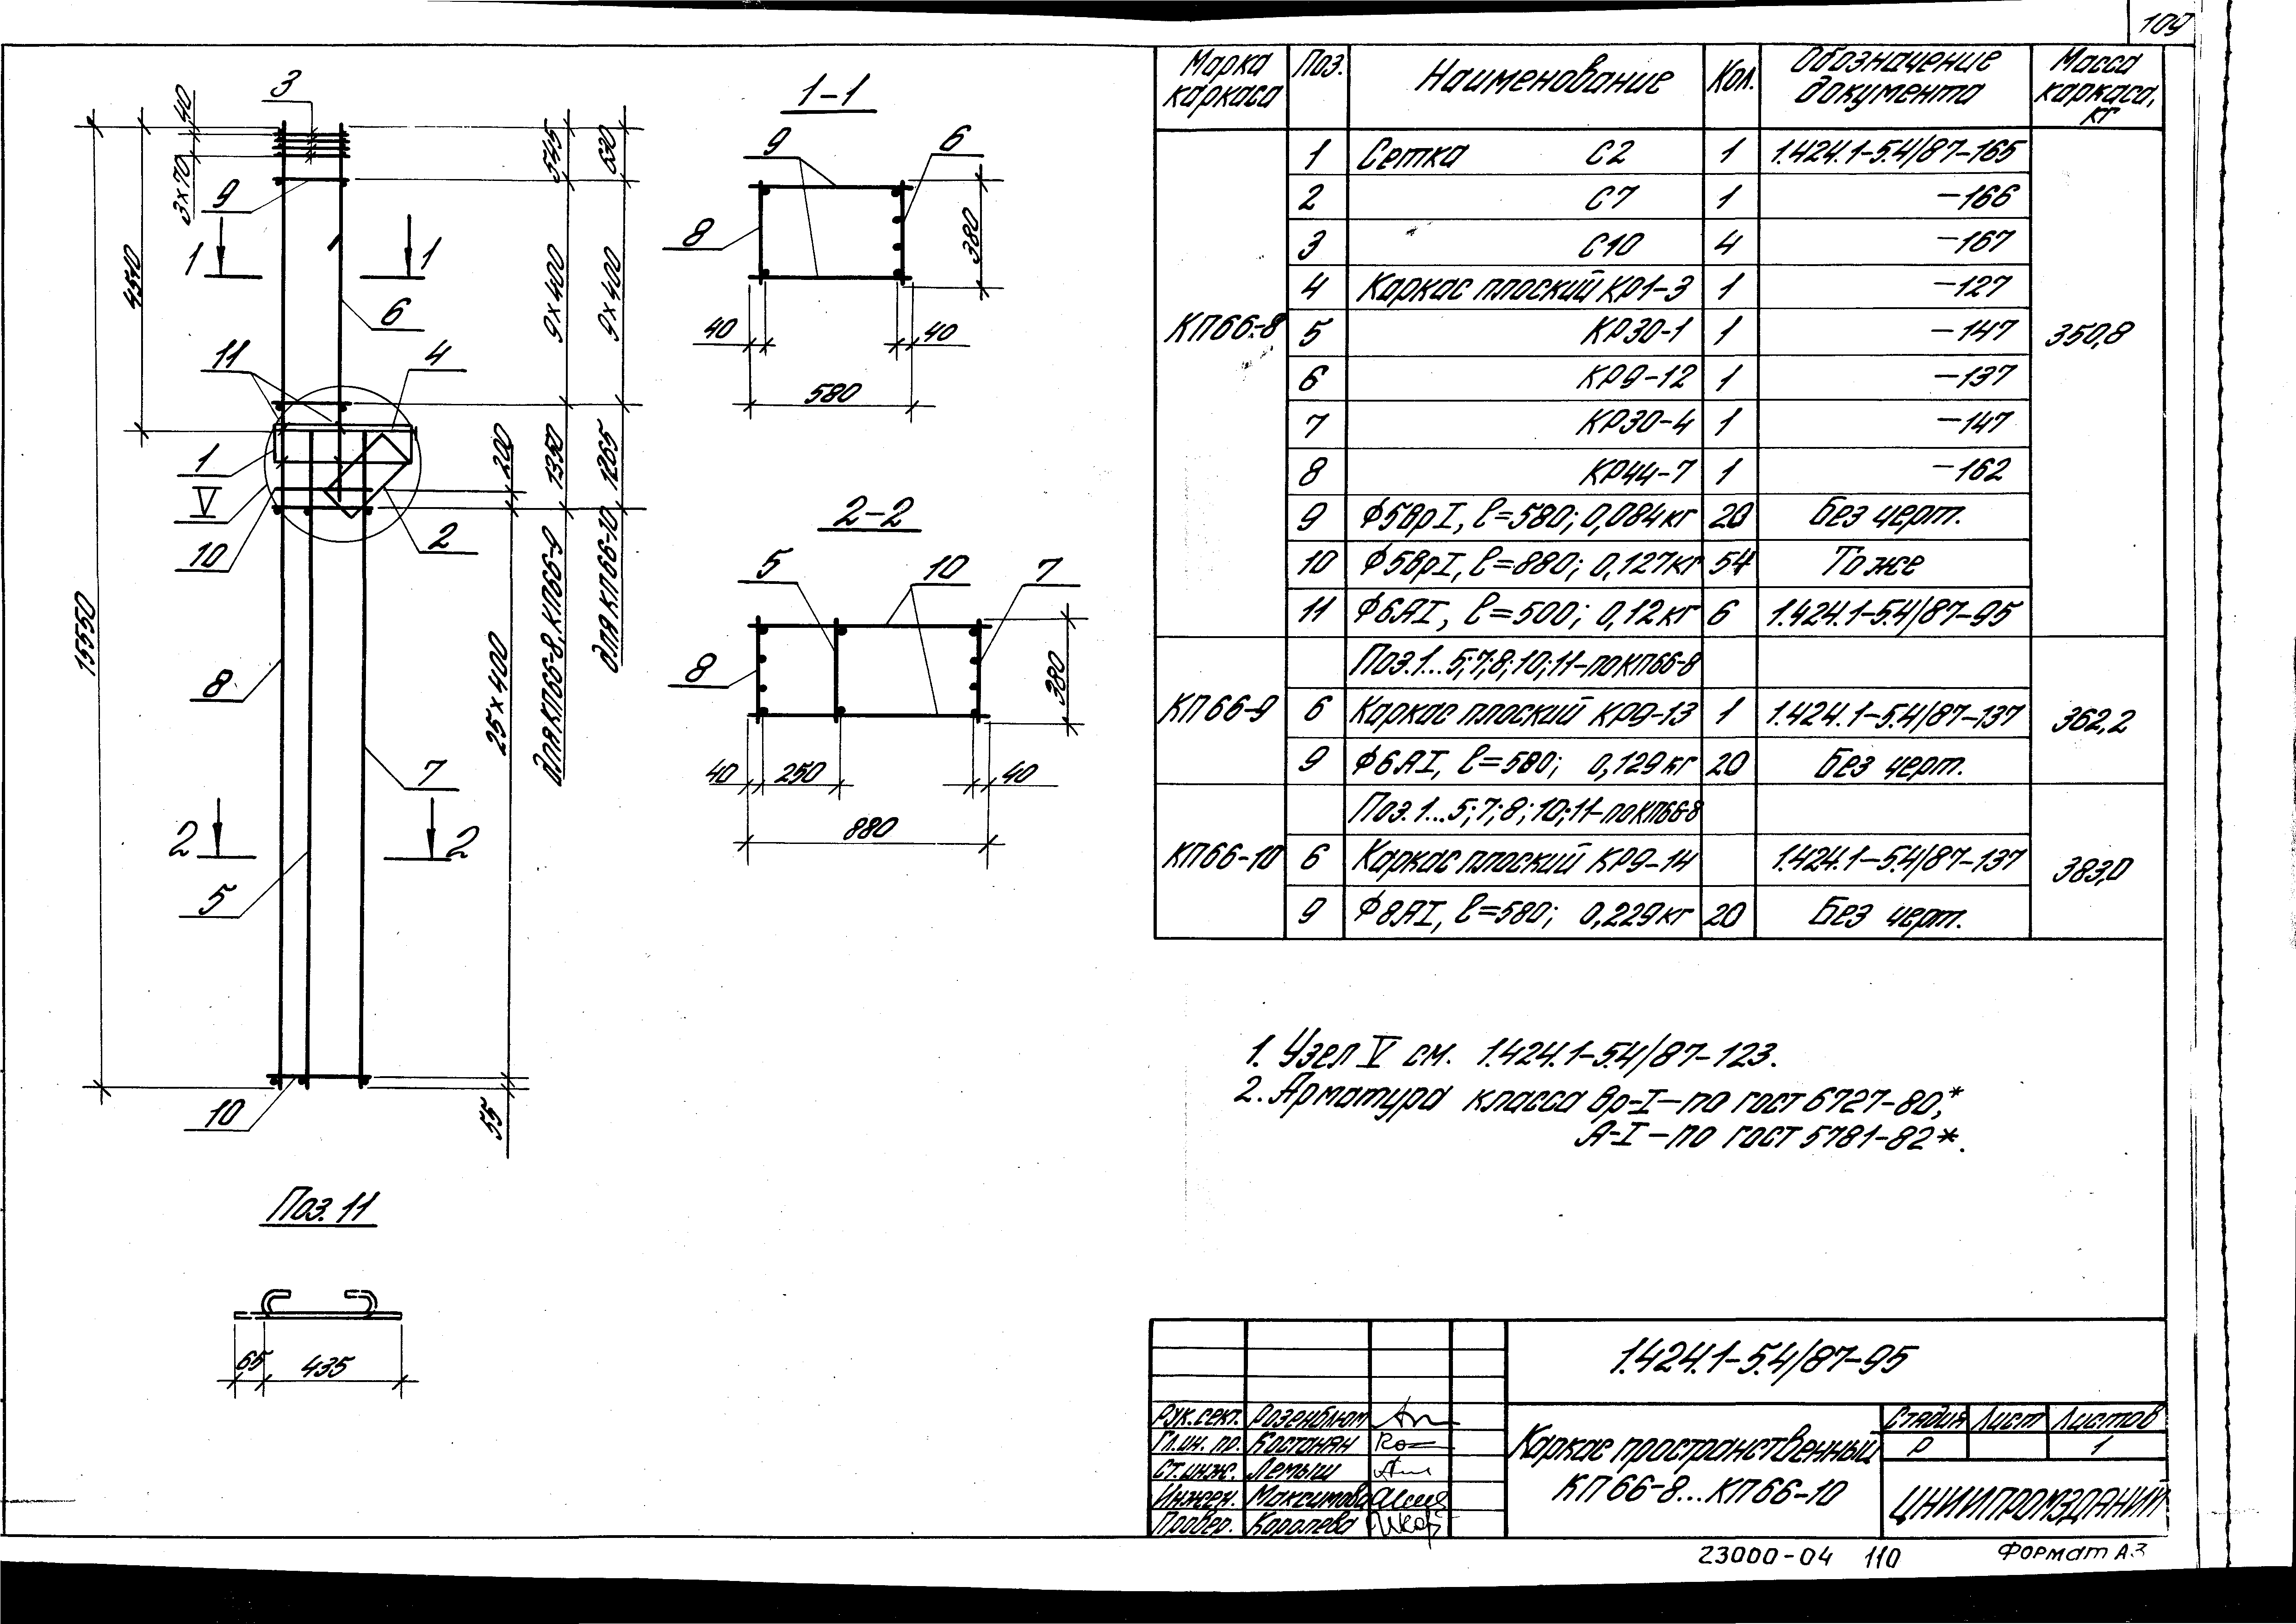 109
3
40
3×70
9
1
1
4550
6
11
4
1
V
10
2
15550
8
7
2
2
5
10
55
25×400
200
545
9×400
1350
Для КП66-8, КП66-9
630
9×400
1265
Для КП66-10
1-1
9
6
8
380
40
40
580
2-2
5
10
7
8
380
40
250
40
880
Поз. 11
65
435
Марка каркаса
Поз.
Наименование
Кол.
Обозначение документа
Масса каркаса, кг
КП66-8
350,8
1 Сетка С2 1 1.424.1-5.4/87-165
2 С7 1 -166
3 С10 4 -167
4 Каркас плоский КР1-3 1 -127
5 КР30-1 1 -147
6 КР9-12 1 -137
7 КР30-4 1 -147
8 КР44-7 1 -162
9 Ф5ВрI, ℓ=580; 0,084кг 20 Без черт.
10 Ф5ВрI, ℓ=880; 0,127кг 54 То же
11 Ф6АI, ℓ=500; 0,12кг 6 1.424.1-5.4/87-95
КП66-9
362,2
Поз.1...5;7;8;10;11-по КП66-8
6 Каркас плоский КР9-13 1 1.424.1-5.4/87-137
9 Ф6АI, ℓ=580; 0,129кг 20 Без черт.
КП66-10
383,0
Поз.1...5;7;8;10;11-по КП66-8
6 Каркас плоский КР9-14 1.424.1-5.4/87-137
9 Ф8АI, ℓ=580; 0,229кг 20 Без черт.
1. Узел V см. 1.424.1-5.4/87-123.
2. Арматура класса Вр-I-по ГОСТ 6727-80,*
А-I-по ГОСТ 5781-82*.
1.424.1-5.4/87-95
Рук.сект. Розенблюм
Гл.ин. пр. Костанян
Ст.инж. Лемыш
Инжен. Максимова
Провер. Королева
Каркас пространственный
КП66-8...КП66-10
Стадия Лист Листов
Р 1
ЦНИИПРОМЗДАНИЙ
23000-04 110
Формат А3